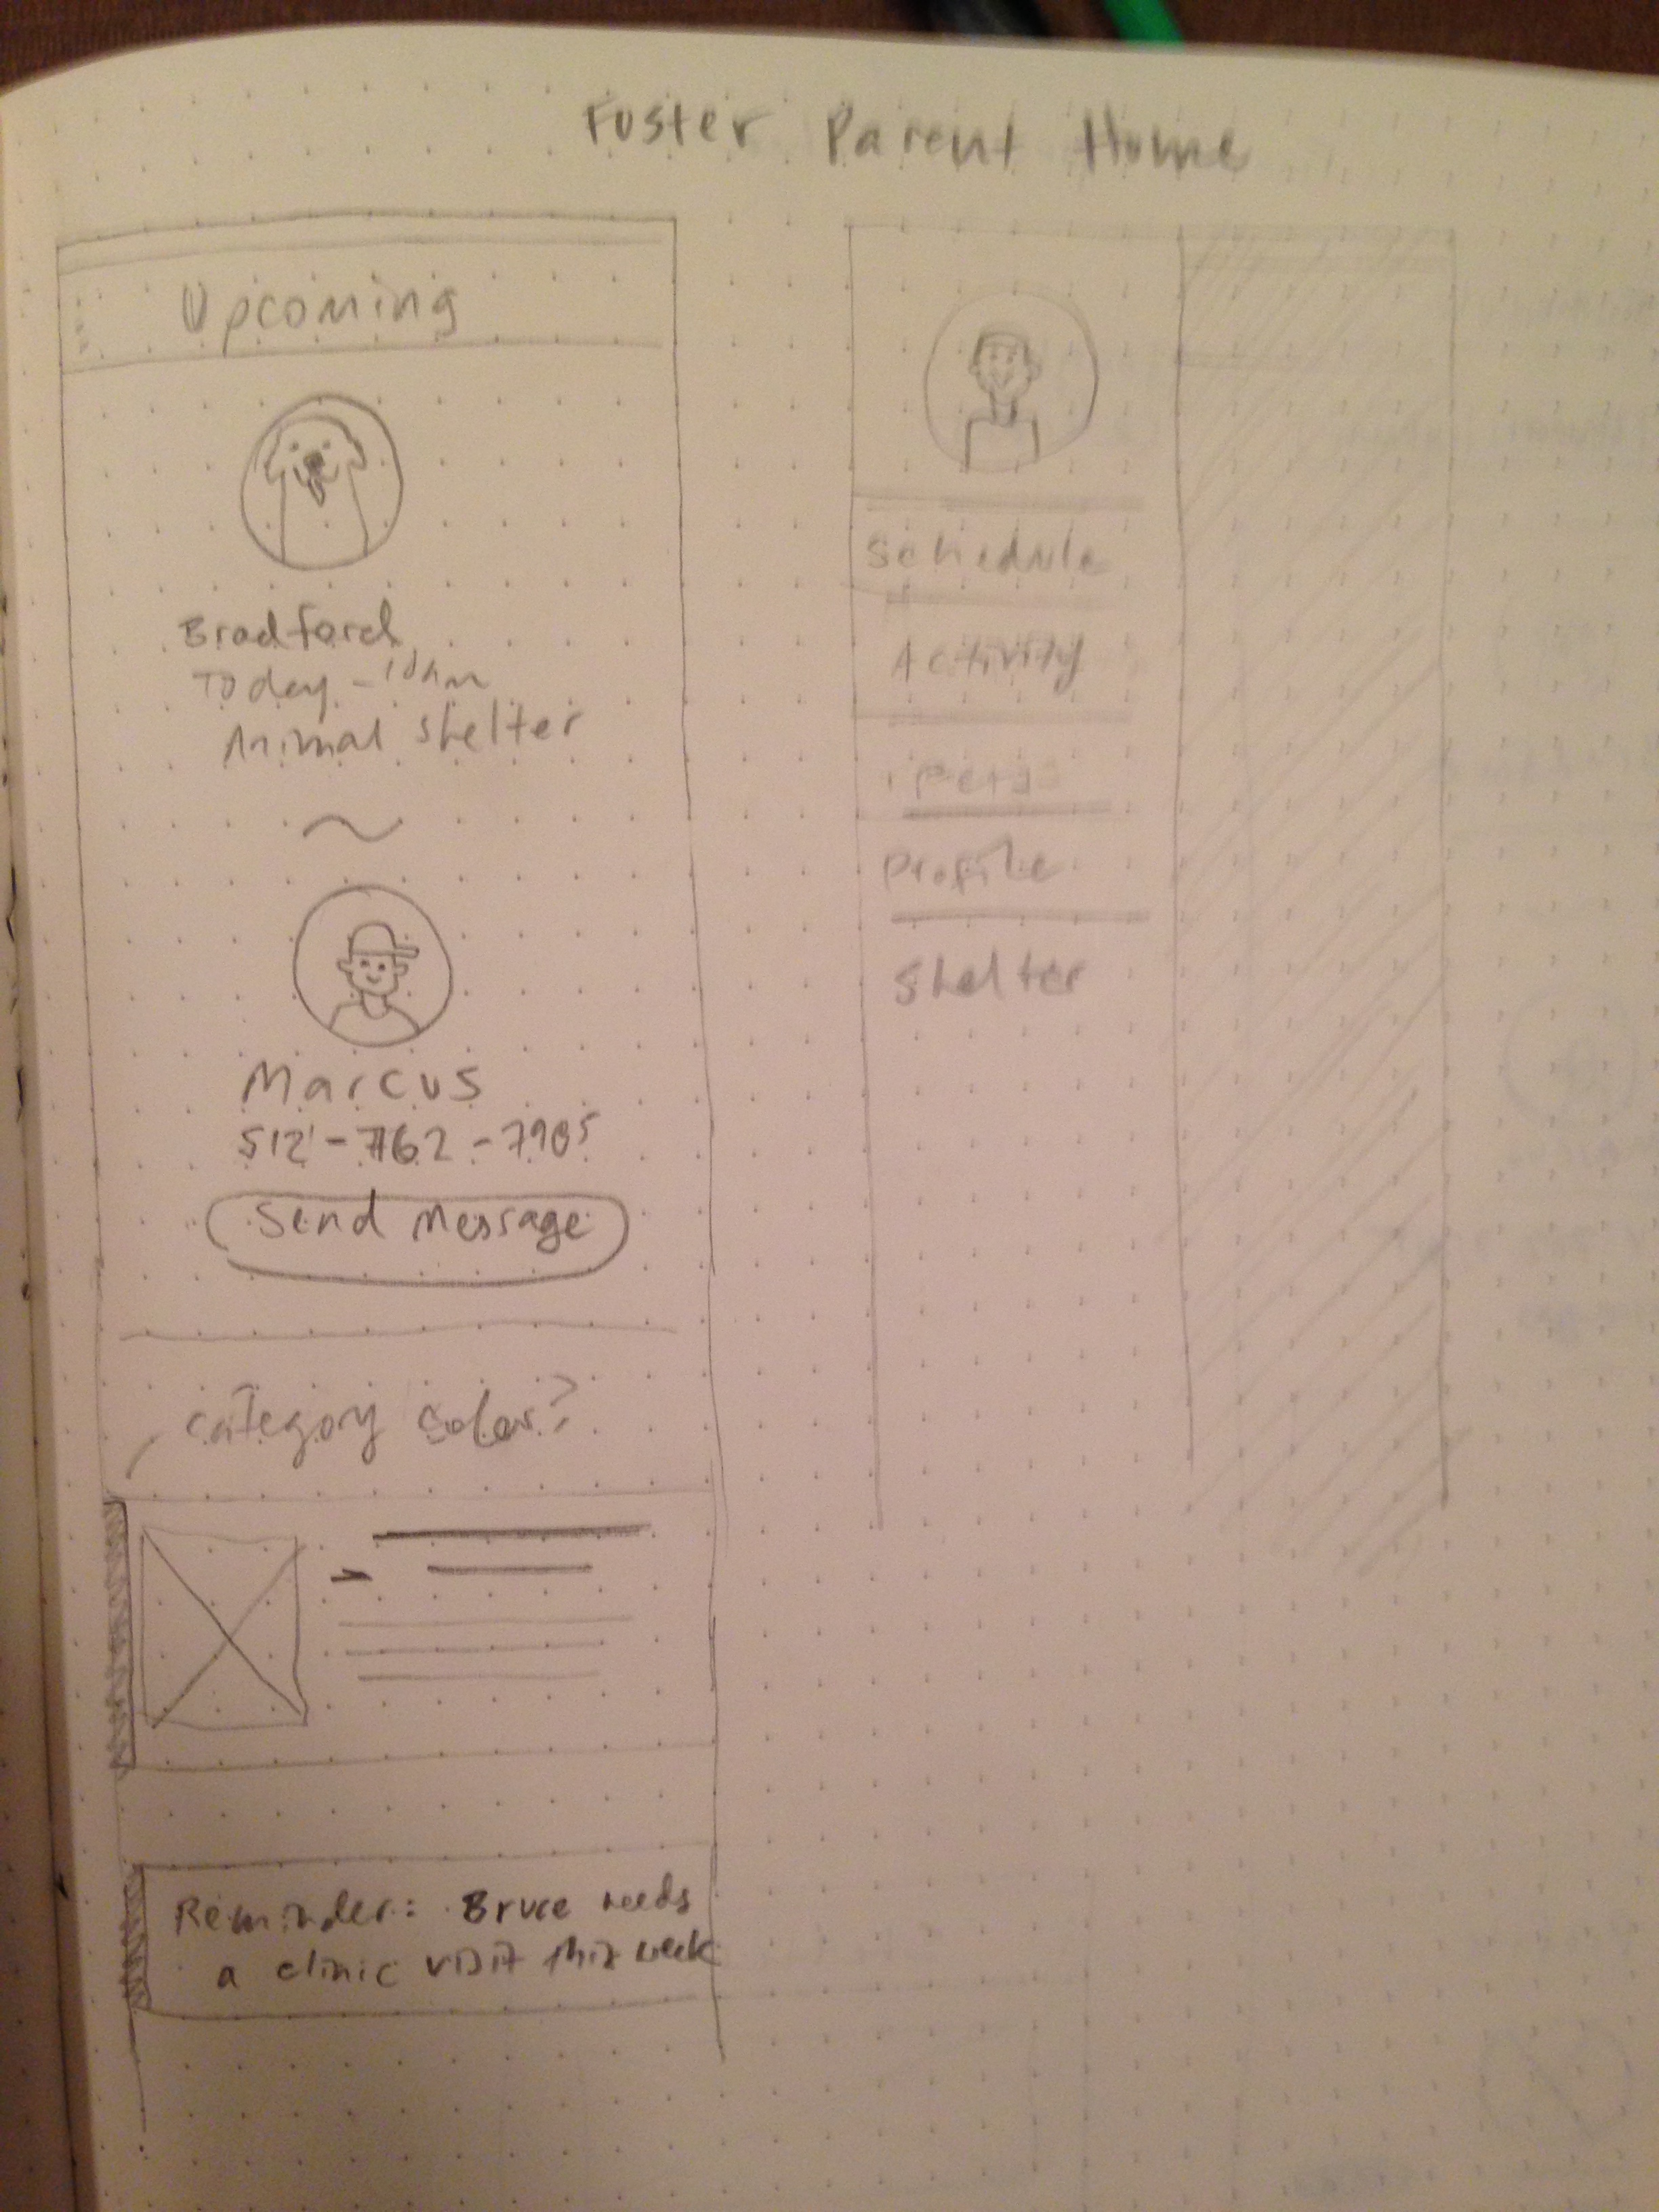 Foster Parent Home
Upcoming
Bradford
Today - 10am
Animal Shelter
Marcus
512-762-7905
Send Message
category color?
Reminder: Bruce needs
a clinic visit this week
Schedule
Activity
Pets
Profile
Shelter